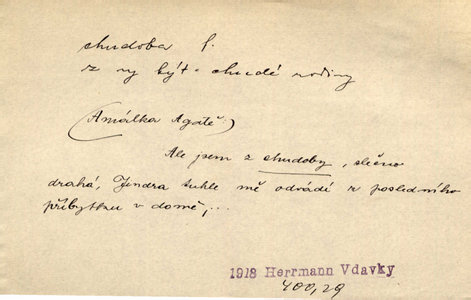 chudoba f.
z ny být · chudé rodiny
(Amálka Agatě:)
Ale jsem z chudoby, slečno
drahá, Jindra tuhle mě odvádí z posledního
příbytku v domě,...
1918 Herrmann Vdavky
400,29